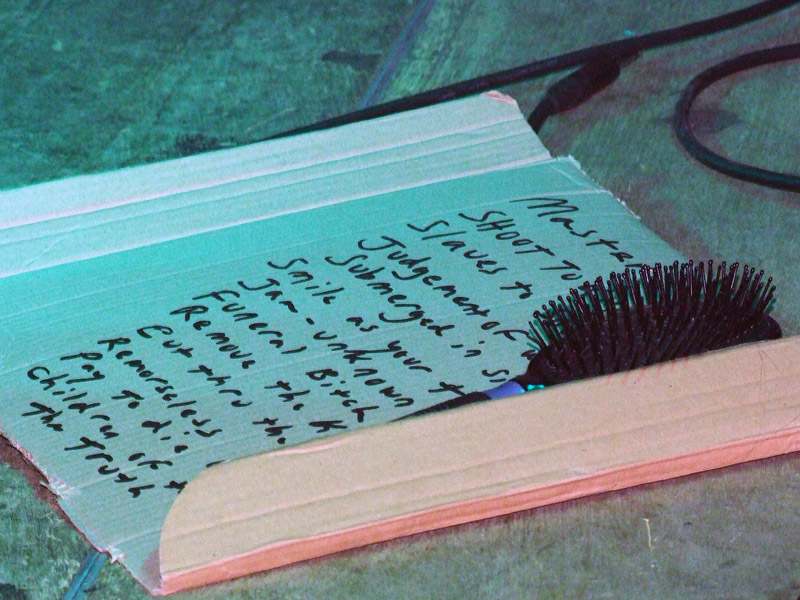 Master
SHOOT TO
Slaves to
Judgement of
Submerged in
Smile as your
Jam - unknown
Funeral Bitch
Remove the K
Cut thru the
Remorseless
Pay to die
Children of t
the truth